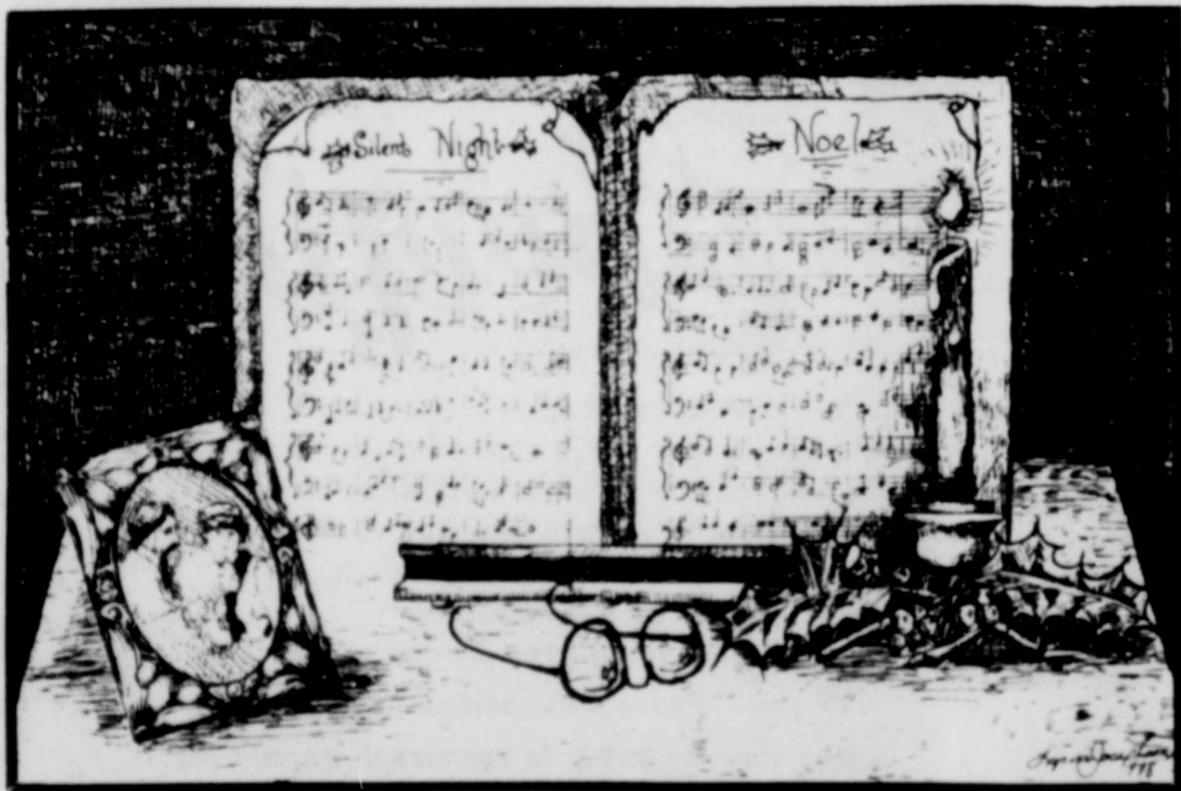 Silent Night
Noel